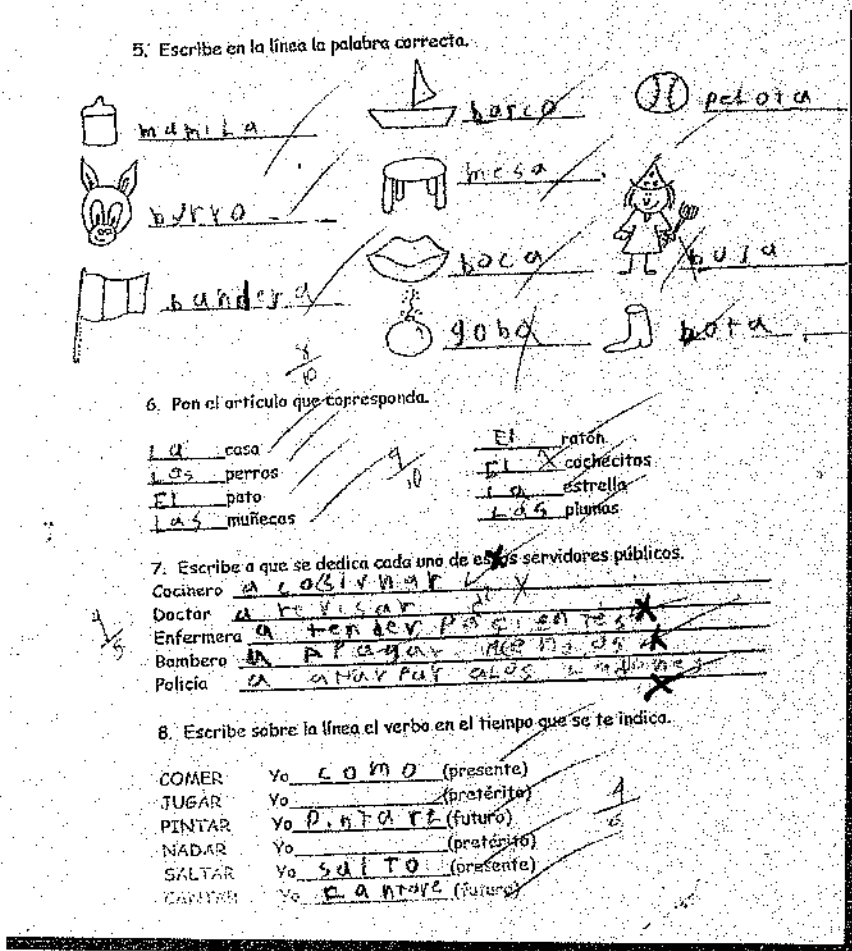 5. Escribe en la línea la palabra correcta.
mamila barco pelota
burro mesa
bandera boca buja
goba bota
8/10
6. Pon el artículo que corresponda.
La casa El ratón
Las perros El cochecitos
El pato La estrella
Las muñecas Las plumas
9/10
7. Escribe a que se dedica cada uno de estos servidores públicos.
Cocinero a
Doctor a revisar
Enfermera a tender pacientes
Bombero a apagar
Policía a atarpar alos
4/5
8. Escribe sobre la línea el verbo en el tiempo que se te indica.
COMER Yo como (presente)
JUGAR Yo (pretérito)
PINTAR Yo pintare (futuro)
NADAR Yo (pretérito)
SALTAR Yo salto (presente)
CANTAR Yo cantare (futuro)
4/6